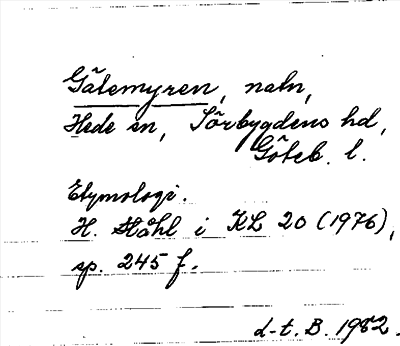 Gålemyren, natn,
Hede sn, Sörbygdens hd,
Göteb. l.
Etymologi.
H. Ståhl i KL 20 (1976),
sp. 245 f.
d-t. B. 1982.